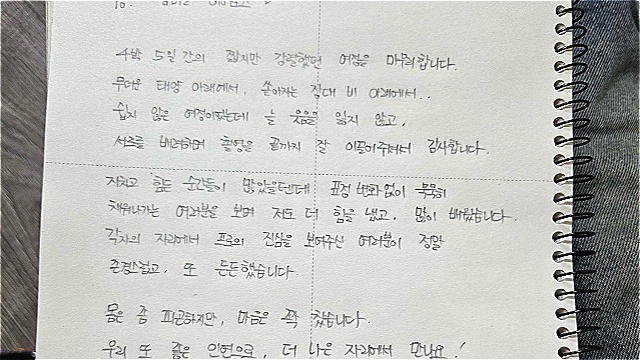 10.
4박 5일 간의 짧지만 강렬했던 여정을 마무리합니다.
무더운 태양 아래에서, 쏟아지는 장대 비 아래에서..
쉽지 않은 여정이었는데 늘 웃음을 잃지 않고,
서로를 배려하며 촬영을 끝까지 잘 이끌어주셔서 감사합니다.
지치고 힘든 순간들이 많았을텐데 표정 변화없이 묵묵히
채워나가는 여러분을 보며 저도 더 힘을 냈고, 많이 배웠습니다.
각자의 자리에서 프로의 진심을 보여주신 여러분이 정말
존경스럽고, 또 든든했습니다.
몸은 좀 피곤하지만, 마음은 꽉 찼습니다.
우리 또 좋은 인연으로, 더 나은 자리에서 만나요!